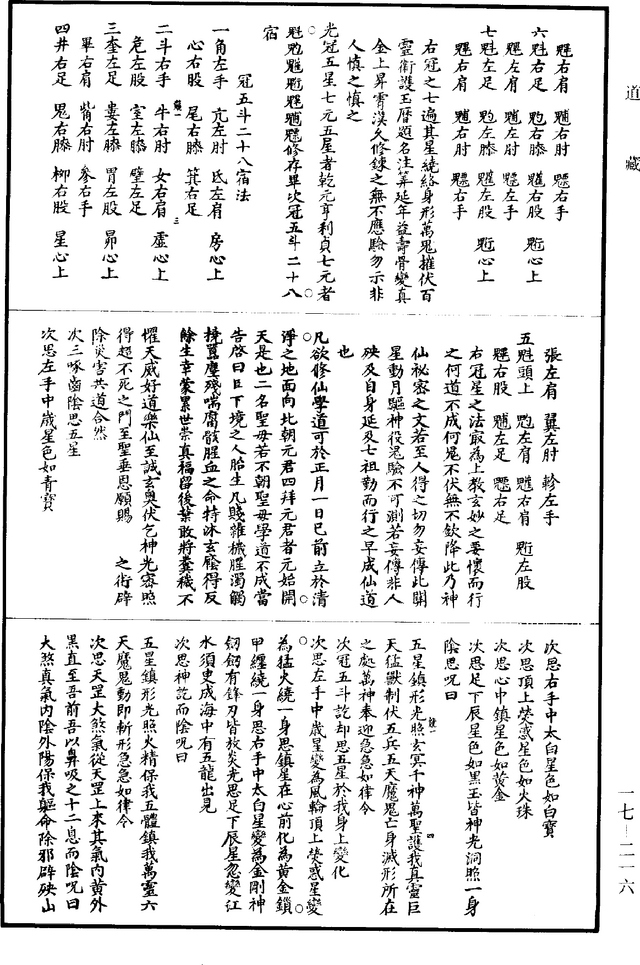 道藏
魓右肩　䰢右肘　魒右手
六魁右足　魀右膝　䰢右股　魓心上
魓左肩　䰢左肘　魒左手
七魁左足　魀左膝　䰢左股　魓心上
魓右肩　䰢右肘　魒右手
右冠之七遍其星繞絡身形萬鬼摧伏百
靈衛護玉曆題名注筭延年益壽骨變真
金上昇霄漢久修鍊之無不應驗勿示非
人慎之慎之
光冠五星七元五星者乾元亨利貞七元者
修存畢次冠五斗二十八
宿
冠五斗二十八宿法
一角左手　亢左肘　氐左肩　房心上
心右股　尾右膝　箕右足
二斗右手　牛右肘　女右肩　虛心上
危左股　室左膝　壁左足
三奎左足　婁左膝　胃左股　昴心上
畢右肩　觜右肘　參右手
四井右足　鬼右膝　柳右股　星心上
張左肩　翼左肘　軫左手
五魁頭上　魀左肩　䰢右肩　魓左股
魓右股　䰢左足　魒右足
右冠星之法最為上教玄妙之要懷而行
之何道不成何鬼不伏無不欽降此乃神
仙祕密之文若至人得之切勿妄傳此關
星動月驅神役鬼驗不可測若妄傳非人
殃及自身延及七祖勤而行之早成仙道
也
凡欲修仙學道可於正月一日已前立於清
淨之地面向北朝元君四拜元君者元始開
天是也二名聖母若不朝聖母學道不成當
告啓曰臣下境之人胎生凡賤雜穢腥濁觸
撓罝塵殘喘腐骸腥血之命特沐玄廕得反
除生幸蒙累世崇真福留後葉敢將糞穢不
懼天威好道樂仙至誠玄奧伏乞神光密照
得超不死之門至聖垂恩願賜　之術辟
除災害共道合然
次三啄齒陰思五星
次思左手中歲星色如青寶
次思右手中太白星色如白寶
次思頂上熒惑星色如火珠
次思心中鎮星色如黃金
次思足下辰星色如黑玉皆神光洞照一身
陰思呪曰
五星鎮形光照玄冥千神萬聖護我真靈巨
天猛獸制伏五兵五天魔鬼亡身滅形所在
之處萬神奉迎急急如律令
次冠五斗訖却思五星於我身上變化
次思左手中歲星變為風輪頂上熒惑星變
為猛火繞一身思鎮星在心前化為黃金鎖
甲纏繞一身思右手中太白星變為金剛神
釰釰有鋒刃皆放炎光思足下辰星忽變江
水須臾成海中有五龍出見
次思神訖而陰呪曰
五星鎮形光照火精保我五體鎮我萬靈六
天魔鬼動即斬形急急如律令
次思天罡大煞氣從天罡上來其氣內黃外
黑直至吾前吾以鼻吸之十二息而陰呪曰
大煞真氣內陰外陽保我軀命除邪辟殃山
一七—二一六